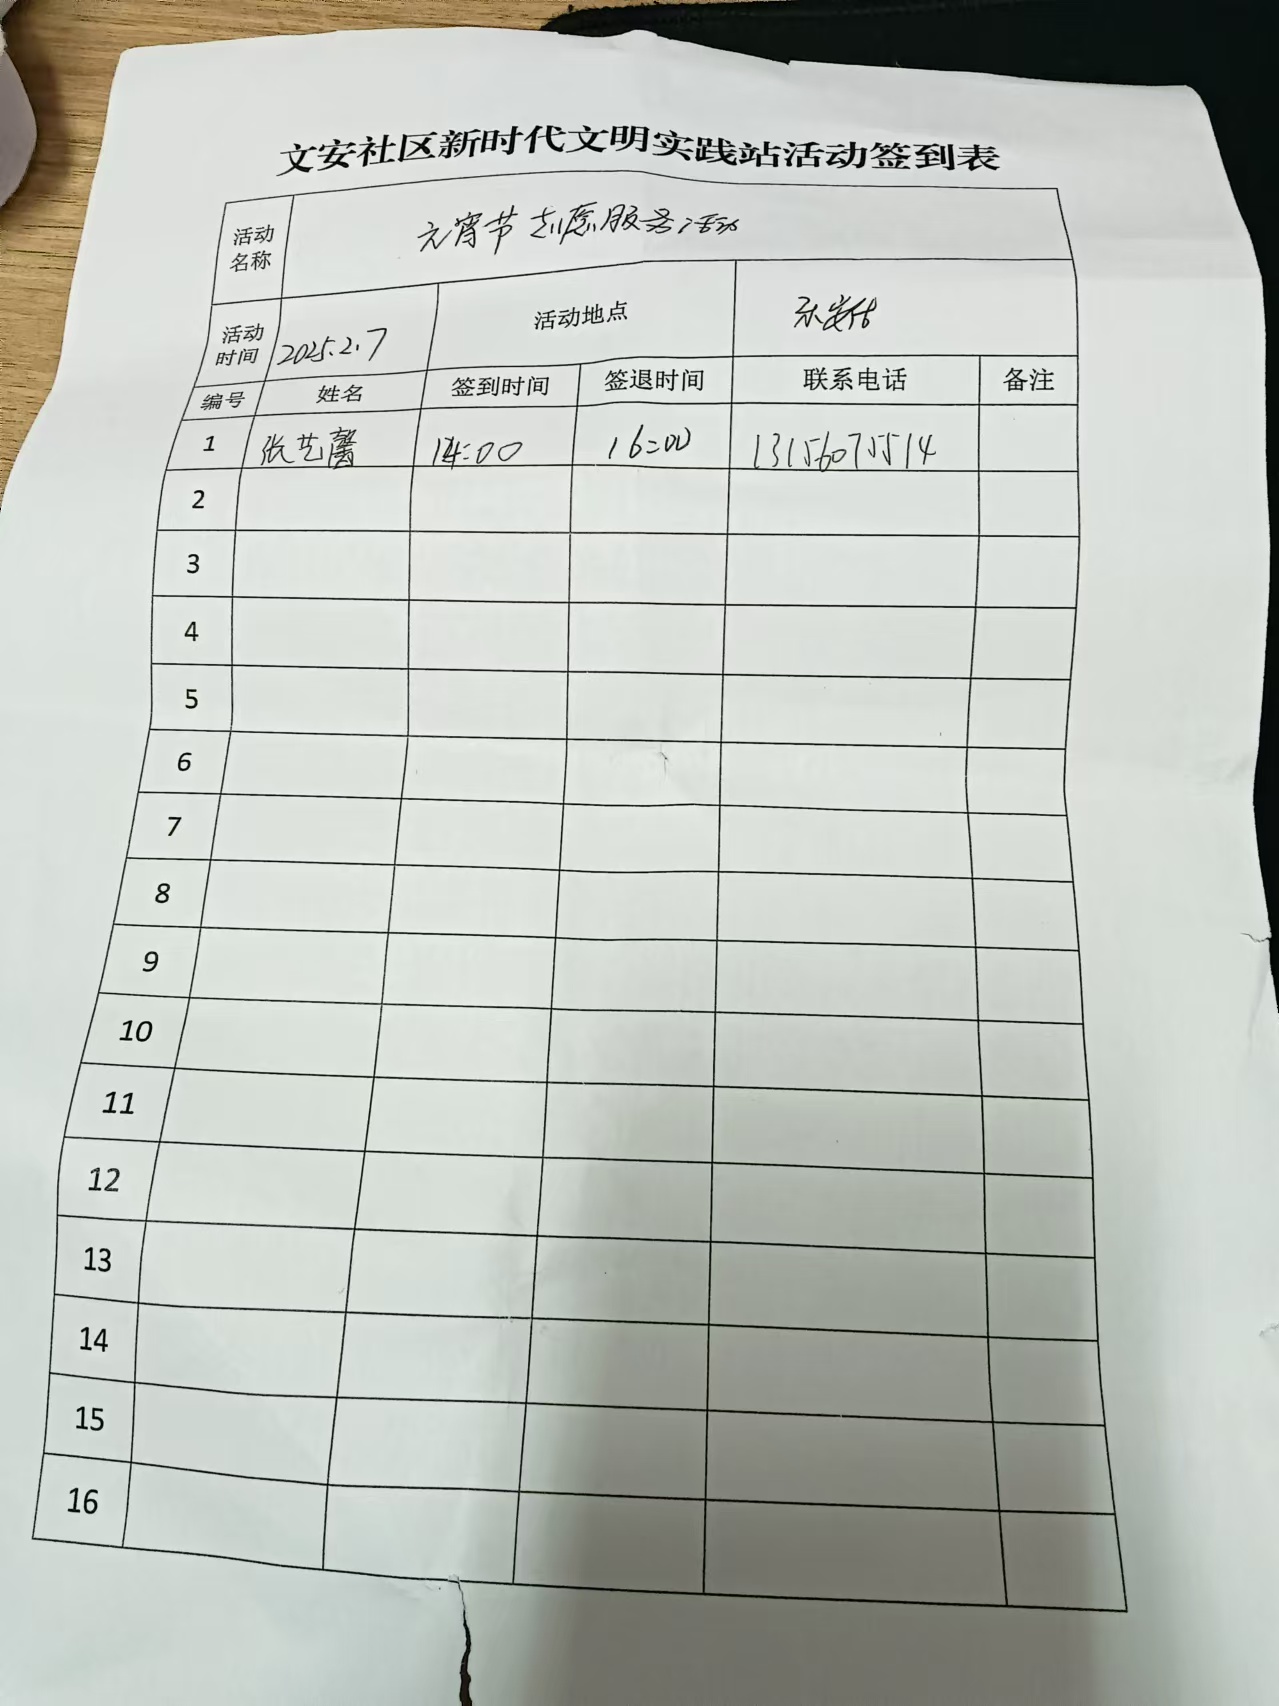 文安社区新时代文明实践站活动签到表
活动名称 元宵节志愿服务活动
活动时间 2025.2.7 活动地点
编号 姓名 签到时间 签退时间 联系电话 备注
1 张艺馨 14:00 16:00 13156075514
2
3
4
5
6
7
8
9
10
11
12
13
14
15
16